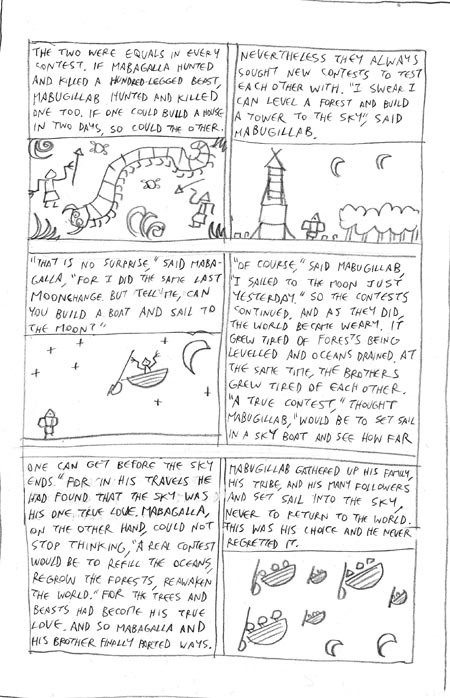 THE TWO WERE EQUALS IN EVERY
CONTEST. IF MABAGALLA HUNTED
AND KILLED A HUNDRED-LEGGED BEAST,
MABUGILLAB HUNTED AND KILLED
ONE TOO. IF ONE COULD BUILD A HOUSE
IN TWO DAYS, SO COULD THE OTHER.
NEVERTHELESS THEY ALWAYS
SOUGHT NEW CONTESTS TO TEST
EACH OTHER WITH. "I SWEAR I
CAN LEVEL A FOREST AND BUILD
A TOWER TO THE SKY," SAID
MABUGILLAB.
"THAT IS NO SURPRISE," SAID MABA-
GALLA, "FOR I DID THE SAME LAST
MOONCHANGE. BUT TELL ME, CAN
YOU BUILD A BOAT AND SAIL TO
THE MOON?"
"OF COURSE," SAID MABUGILLAB,
"I SAILED TO THE MOON JUST
YESTERDAY." SO THE CONTESTS
CONTINUED, AND AS THEY DID,
THE WORLD BECAME WEARY. IT
GREW TIRED OF FORESTS BEING
LEVELLED AND OCEANS DRAINED. AT
THE SAME TIME, THE BROTHERS
GREW TIRED OF EACH OTHER.
"A TRUE CONTEST," THOUGHT
MABUGILLAB, "WOULD BE TO SET SAIL
IN A SKY BOAT AND SEE HOW FAR
ONE CAN GET BEFORE THE SKY
ENDS." FOR IN HIS TRAVELS HE
HAD FOUND THAT THE SKY WAS
HIS ONE TRUE LOVE. MABAGALLA,
ON THE OTHER HAND, COULD NOT
STOP THINKING, "A REAL CONTEST
WOULD BE TO REFILL THE OCEANS,
REGROW THE FORESTS, REAWAKEN
THE WORLD." FOR THE TREES AND
BEASTS HAD BECOME HIS TRUE
LOVE. AND SO MABAGALLA AND
HIS BROTHER FINALLY PARTED WAYS.
MABUGILLAB GATHERED UP HIS FAMILY,
HIS TRIBE, AND HIS MANY FOLLOWERS
AND SET SAIL INTO THE SKY,
NEVER TO RETURN TO THE WORLD.
THIS WAS HIS CHOICE AND HE NEVER
REGRETTED IT.